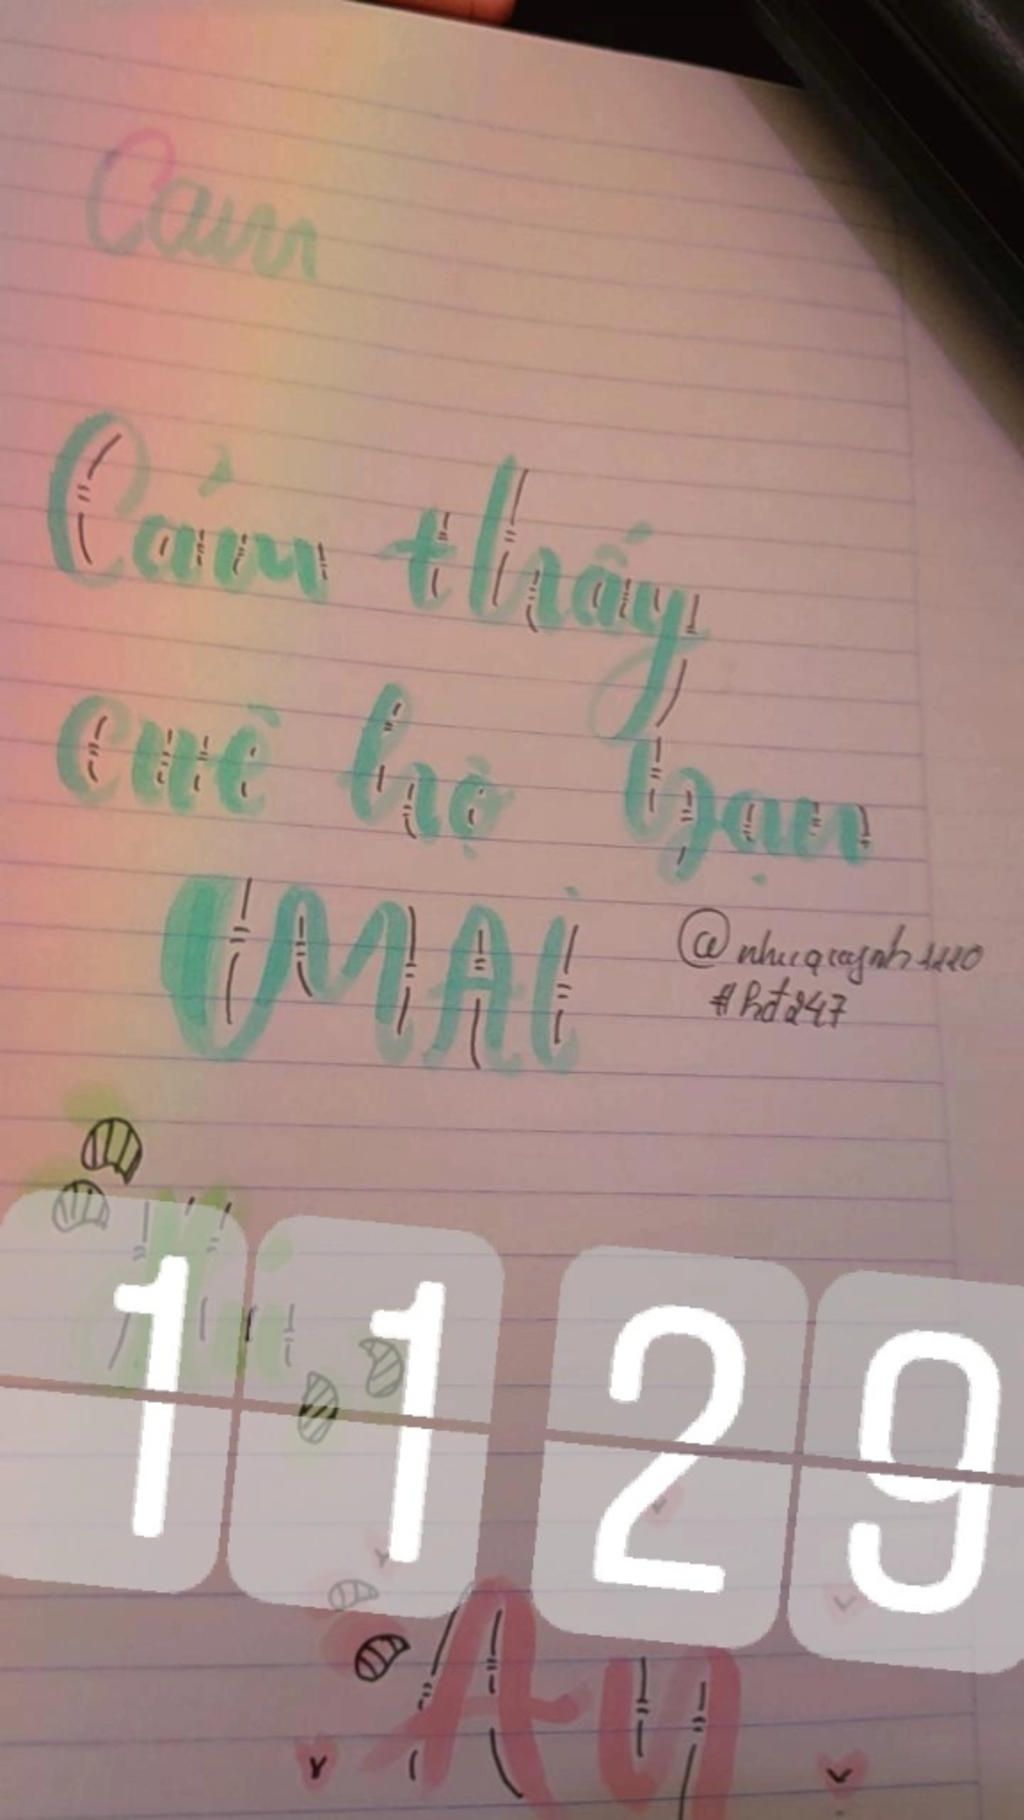 Cam
Cảm thấy
cuê hộ bạn
MAI
@nhuquynh1110
#hđ247
11 29